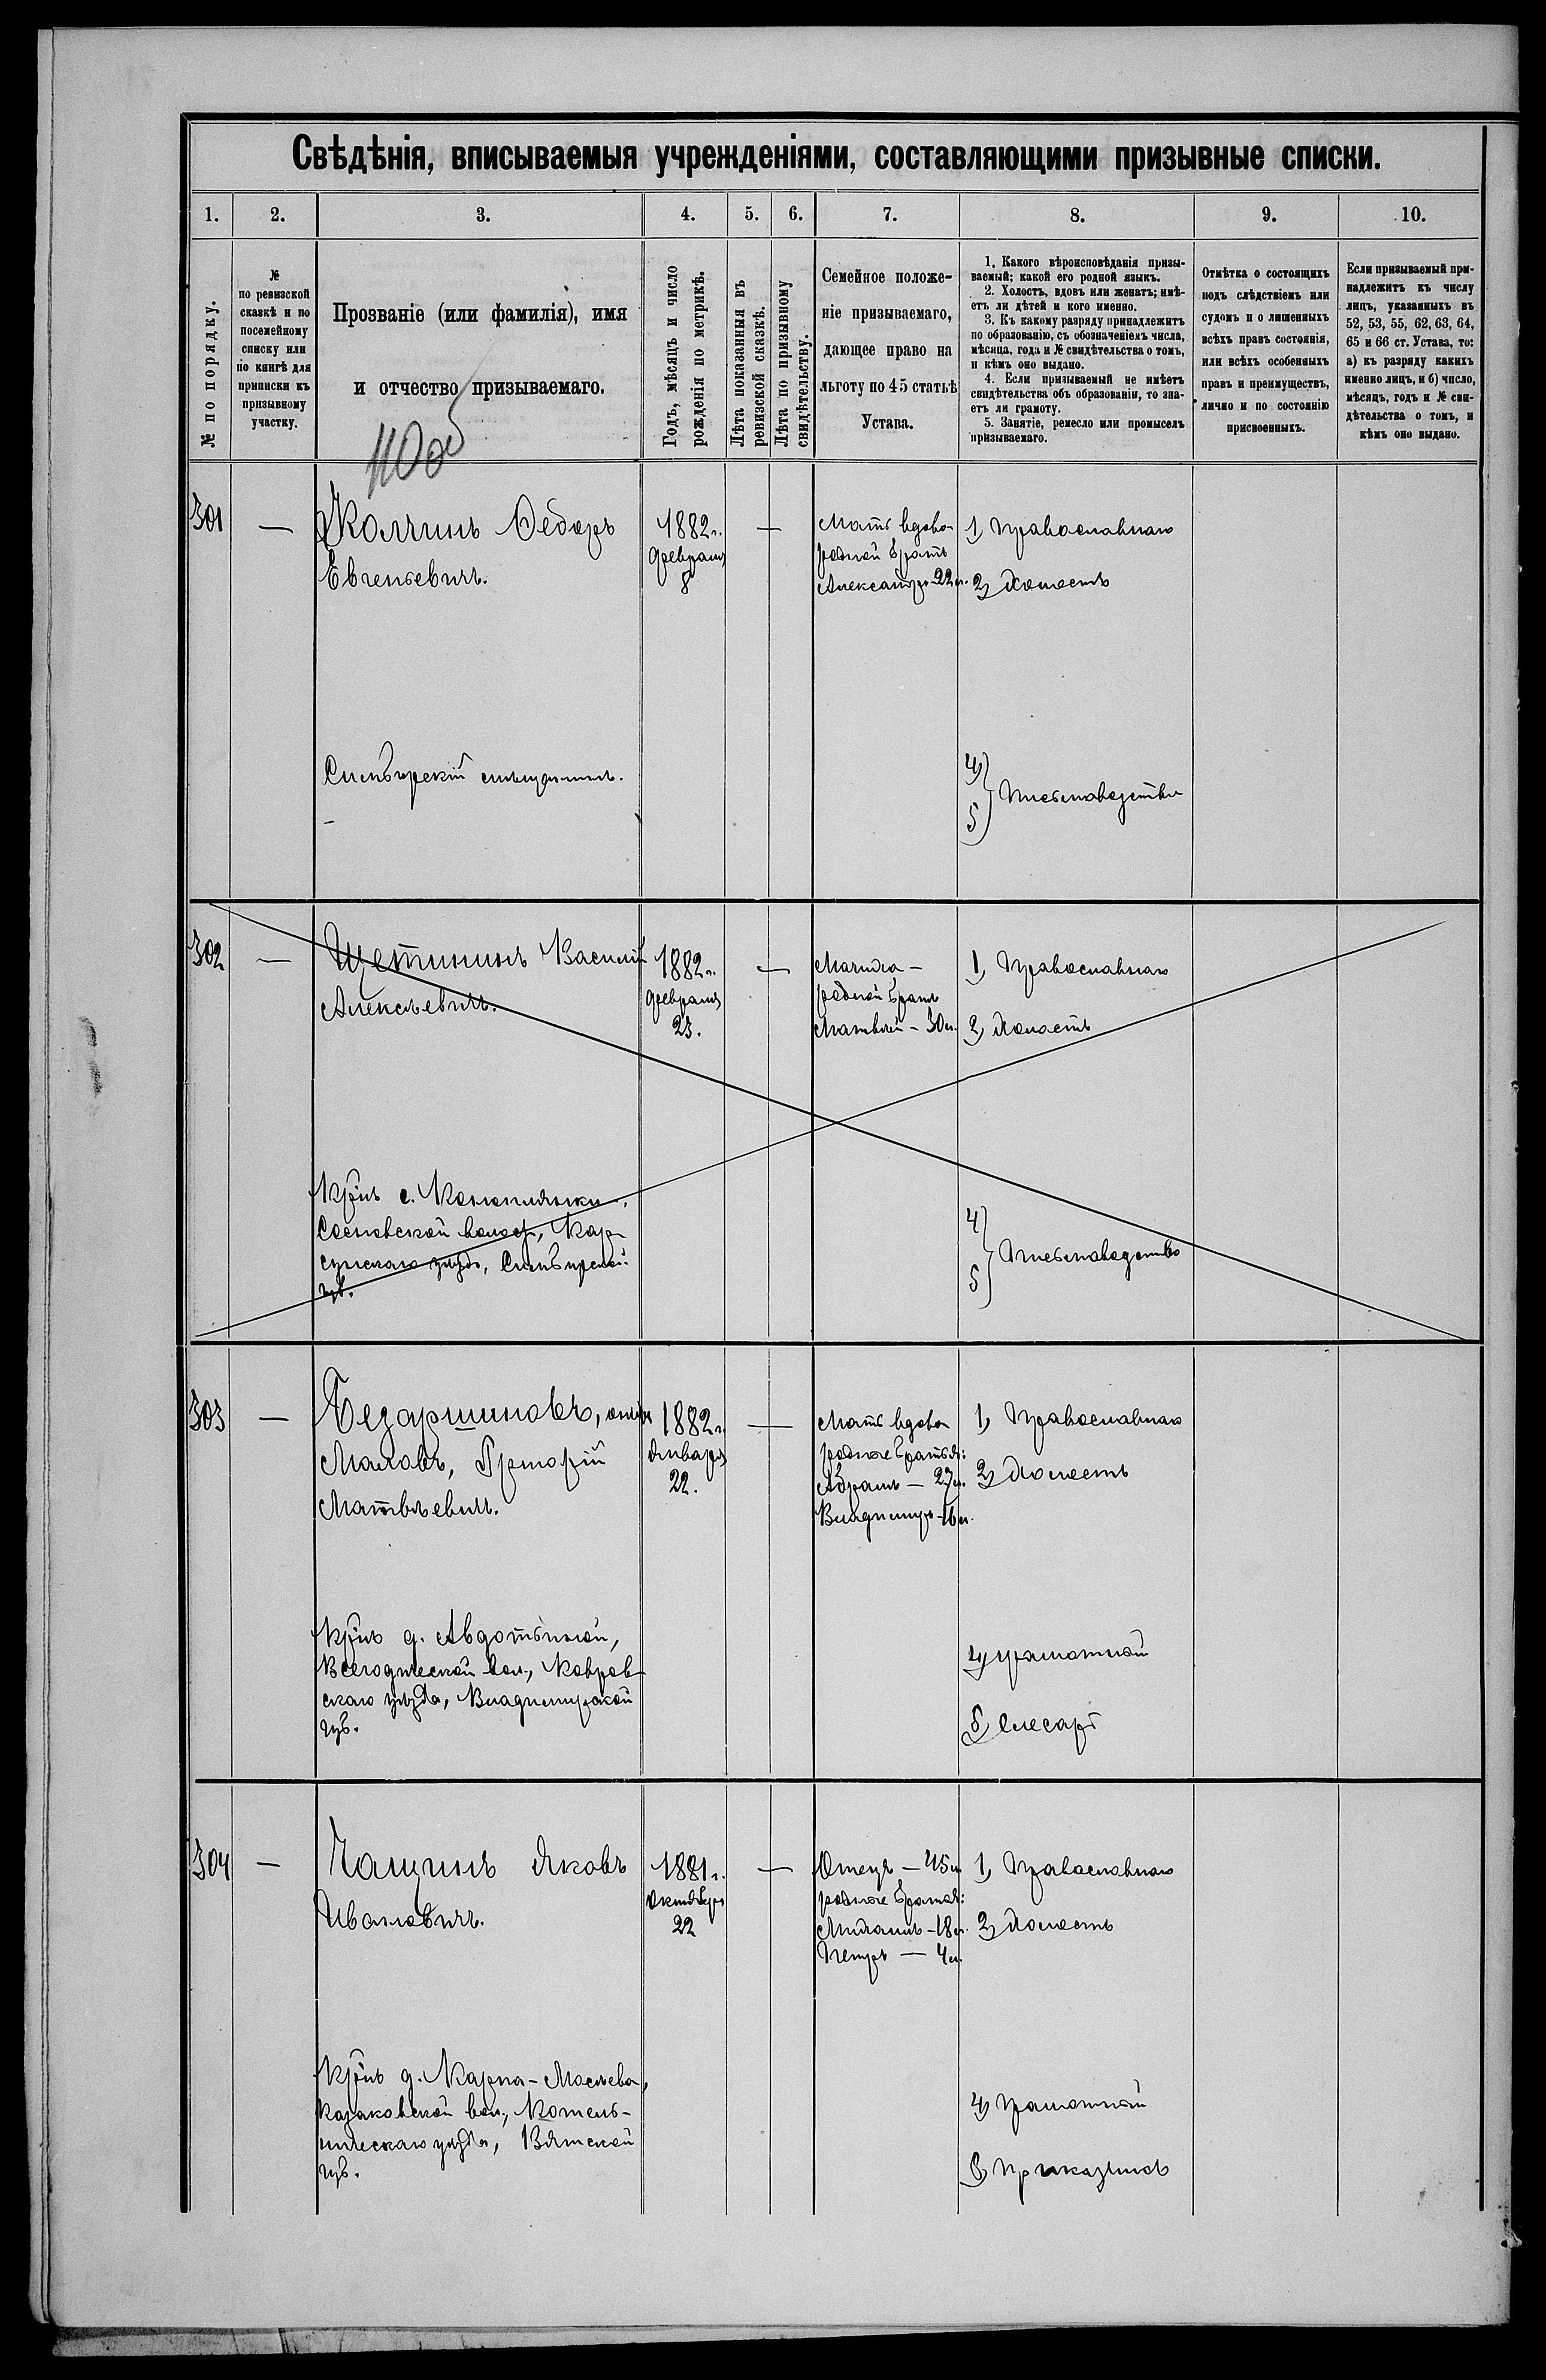 Свѣдѣнія, вписываемыя учрежденіями, составляющими призывные списки.
1. 2. 3. 4. 5. 6. 7. 8. 9. 10.
№ по порядку.
№
по ревизской
сказкѣ и по
посемейному
списку или
по книгѣ для
приписки къ
призывному
участку.
Прозваніе (или фамилія), имя
и отчество призываемаго.
Годъ, мѣсяцъ и число
рожденія по метрикѣ.
Лѣта показанныя въ
ревизской сказкѣ.
Лѣта по призывному
свидѣтельству.
Семейное положе-
ніе призываемаго,
дающее право на
льготу по 45 статьѣ
Устава.
1. Какого вѣроисповѣданія призы-
ваемый; какой его родной языкъ.
2. Холостъ, вдовъ или женатъ; имѣ-
етъ ли дѣтей и кого именно.
3. Къ какому разряду принадлежитъ
по образованію, съ обозначеніемъ числа,
мѣсяца, года и № свидѣтельства о томъ,
и кѣмъ оно выдано.
4. Если призываемый не имѣетъ
свидѣтельства объ образованіи, то зна-
етъ ли грамоту.
5. Занятіе, ремесло или промыселъ
призываемаго.
Отмѣтка о состоящихъ
подъ слѣдствіемъ или
судомъ и о лишенныхъ
всѣхъ правъ состоянія,
или всѣхъ особенныхъ
правъ и преимуществъ,
лично и по состоянію
присвоенныхъ.
Если призываемый при-
надлежитъ къ числу
лицъ, указанныхъ въ
52, 53, 55, 62, 63, 64,
65 и 66 ст. Устава, то:
а) къ разряду какихъ
именно лицъ, и б) число,
мѣсяцъ, годъ и № сви-
дѣтельства о томъ, и
кѣмъ оно выдано.
301 — Колчинъ Ѳедоръ
Евгеньевичъ.
1882 г.
Февраля
8
—
Мать вдова
родной братъ
Александръ - 22 л.
1) Православнаго
2) Холостъ
Симбирскій мѣщанинъ.
4)
5) Письмоводство
302 — Щетининъ Василій
Алексѣевичъ.
1882 г.
Февраля
23.
—
Мачиха —
родной братъ
Матвѣй — 30 л.
1) Православнаго
2) Холостъ
Кр-нъ с. Коноплянки,
Сосновской волост., Кар-
сунскаго уѣзда, Симбирской
губ.
4
5) Письмоводство
303 — Безаршиновъ, онъ же
Маловъ, Григорій
Матвѣевичъ.
1882 г.
Января
22.
—
Мать вдова
родные братья:
Абрамъ — 27 л.
Владимиръ - 16 л.
1) Православнаго
2) Холостъ
Кр-нъ д. Авдотьиной,
Всегодической вол., Ковров-
скаго уѣзда, Владимирской
губ.
4) грамотный
5) Слесарь
304 — Чащинъ Яковъ
Ивановичъ.
1881 г.
Октября
22
—
Отецъ — 45 л.
родные братья:
Михаилъ - 18 л.
Петръ — 4 л.
1) Православнаго
2) Холостъ
Кр-нъ д. Карпа-Мосѣева,
Казаковской вол., Котель-
ническаго уѣзда, Вятской
губ.
4) грамотный
5) приказчикъ